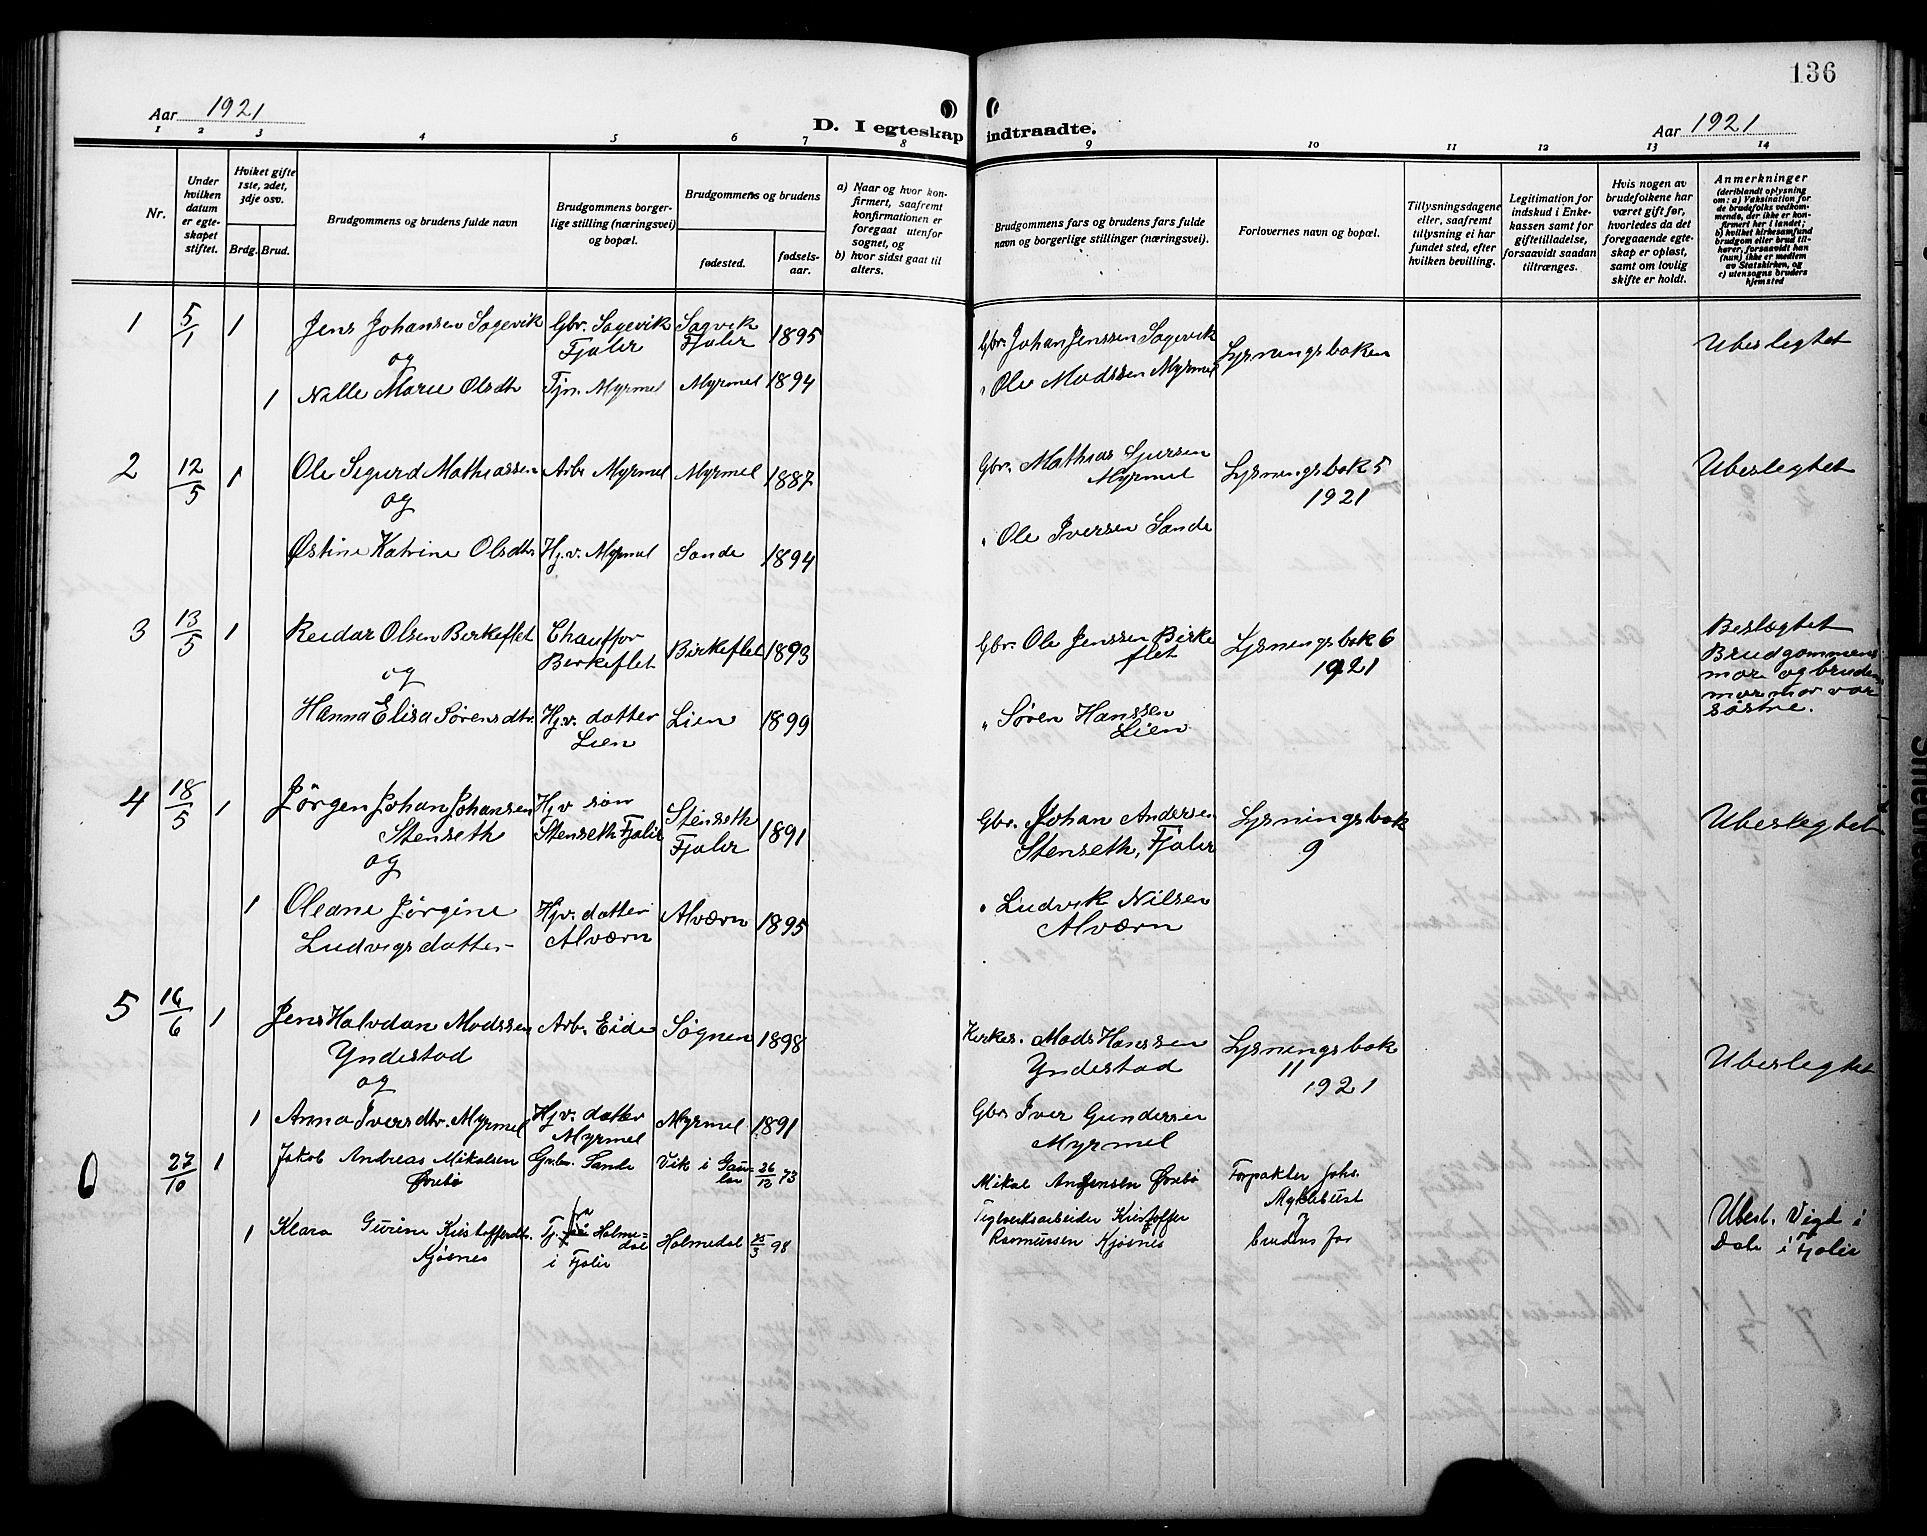 136
Aar 1921
D. I egteskap indtraadte.
Aar 1921
1 2 3 4 5 6 7 8 9 10 11 12 13 14
Nr.
Under hvilken datum er egteskapet stiftet.
Hvilket gifte 1ste, 2det, 3dje osv.
Brdg. Brud.
Brudgommens og brudens fulde navn
Brudgommens borgerlige stilling (næringsvei) og bopæl.
Brudgommens og brudens
fødested.
fødselsaar.
a) Naar og hvor konfirmert, saafremt konfirmationen er foregaat utenfor sognet, og
b) hvor sidst gaat til alters.
Brudgommens fars og brudens fars fulde navn og borgerlige stillinger (næringsvei).
Forlovernes navn og bopæl.
Tillysningsdagene eller, saafremt tillysning ei har fundet sted, efter hvilken bevilling.
Legitimation for indskud i Enkekassen samt for giftetilladelse, forsaavidt saadan tiltrænges.
Hvis nogen av brudefolkene har været gift før, hvorledes da det foregaaende egteskap er opløst, samt om lovlig skifte er holdt.
Anmerkninger
(deriblandt oplysning om: a) Vaksination for de brudefolks vedkommende, der ikke er konfirmert her i landet; b) hvilket kirkesamfund brudgom eller brud tilhører, forsaavidt han (hun) ikke er medlem av Statskirken, og c) utensogns bruders hjemsted
1 5/1 1 Jens Johansen Sagevik Gbr. Sagevik Fjaler Sagvik Fjaler 1895 Gbr. Johan Jenssen Sagevik Lysningsboken Ubeslegtet
og
1 Nille Marie Olsdtr Tjn. Myrmel Myrmel 1894 " Ole Madssen Myrmel
2 12/5 1 Ole Sigurd Mathiassen Arb. Myrmel Myrmel 1887 Gbr. Mathias Sjursen Myrmel Lysningsbok 5 1921 Ubeslegtet
og
Østine Katrine Olsdtr Hj.v. Myrmel Sande 1894 " Ole Iversen Sande
3 13/5 1 Reidar Olsen Birkeflet Chauffør Birkeflet Birkeflet 1893 Gbr. Ole Jenssen Birkeflet Lysningsbok 6 1921 Beslægtet Brudgommens mor og brudens mormor var søstre.
og
Hanna Elisa Sørensdtr. Hj.v. datter Lien Lien 1899 " Søren Hanssen Lien
4 18/5 1 Jørgen Johan Johansen Stenseth Hj.v søn Stenseth Fjaler Stenseth Fjaler 1891 Gbr. Johan Andersen Stenseth, Fjaler Lysningsbok 9 Ubeslegtet
og
1 Oleane Jørgine Ludvigsdatter Hjv. datter Alværn Alværn 1895 " Ludvik Nilsen Alværn
5 16/6 1 Jens Halvdan Madssen Yndestad Arb. Eide Søgnen 1898 Kirkes. Mads Hanssen Yndestad Lysningsbok 11 1921 Ubeslegtet
og
1 Anna Iversdtr. Myrmel Hjv. datter Myrmel Myrmel 1891 Gbr. Iver Gundersen Myrmel
6 27/10 1 Jakob Andreas Mikalsen Ørebø Gmbr. Sande Vik i Gaular 26/12 73 Mikal Andersen Ørebø Forpakter Johs. Myklebust
1 Klara Gurine Kristoffersdtr. Kjøsnes Tj. fra Holmedal i Fjaler Holmedal 25/3 98 Teglverksarbeider Kristoffer Rasmussen Kjøsnes brudens far Ubesl. Vigd i Dale i Fjaler